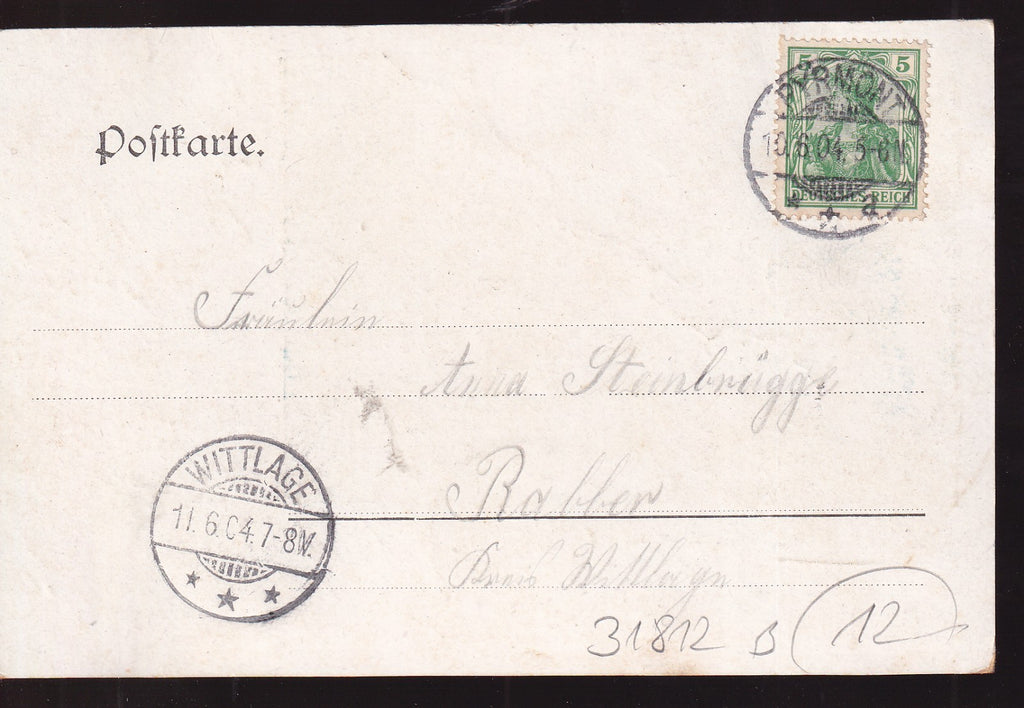 Postkarte.
5 5
PYRMONT
10.6.04. 5-6N.
* d
DEUTSCHES REICH
Fräulein
Anna Steinbrügge
Rabber
Kreis Wittlage
WITTLAGE
11.6.04.7-8V.
31812 B 12